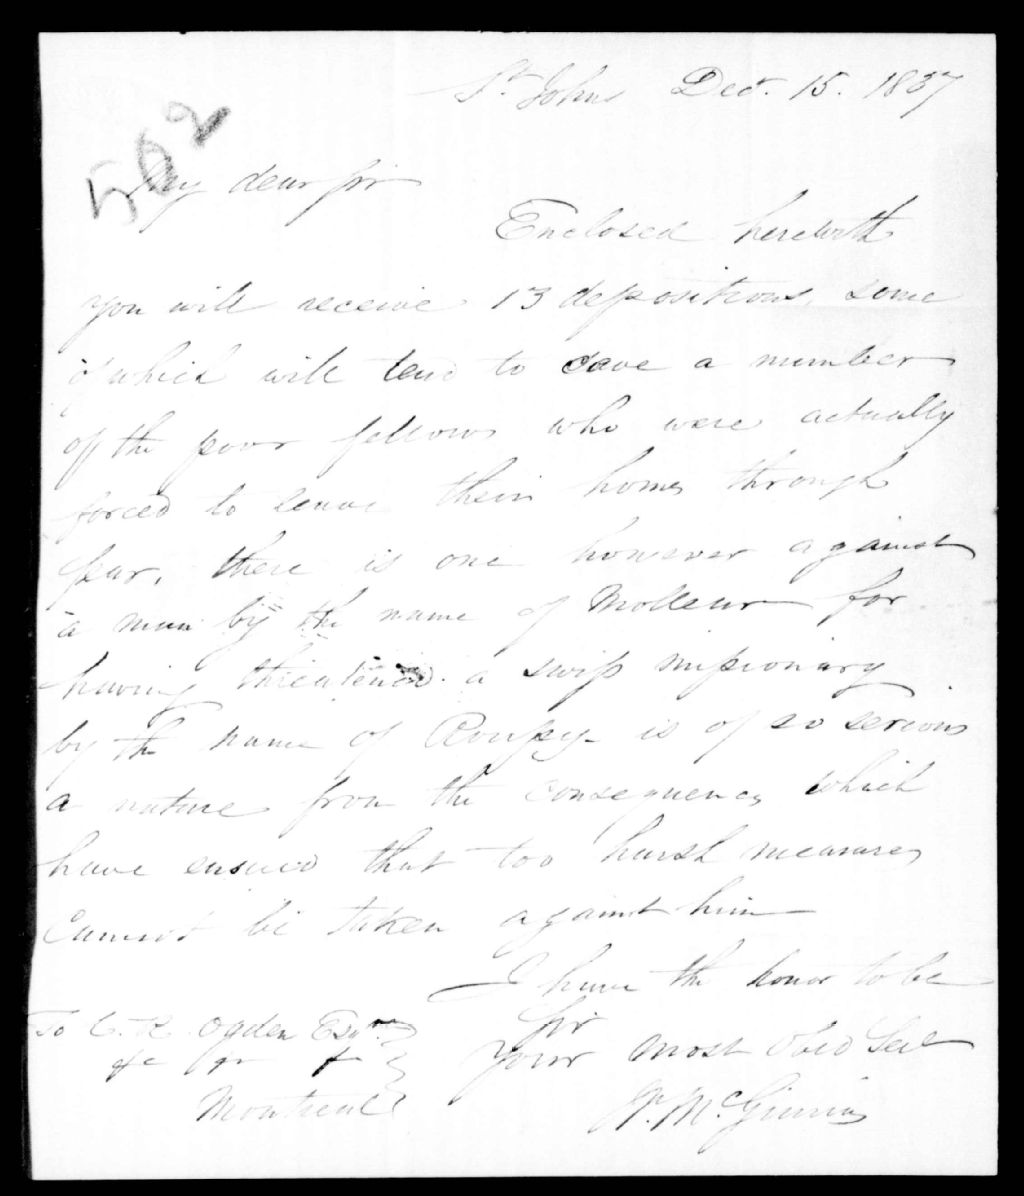 St Johns Decr. 15. 1837
502
My dear Sir
Enclosed herewith
you will receive 13 depositions, some
of which will tend to save a number
of the poor fellows who were actually
forced to leave their homes through
fear, there is one however against
a man by the name of Molleur for
having threatened a swiss missionary
by the name of Roussy is of so serious
a nature from the consequences which
have ensued that too harsh measures
cannot be taken against him
I have the honor to be
Sir
Your most Obed Sevt
W. McGinnis
To C. R. Ogden Esqre
&c &c &
Montreal